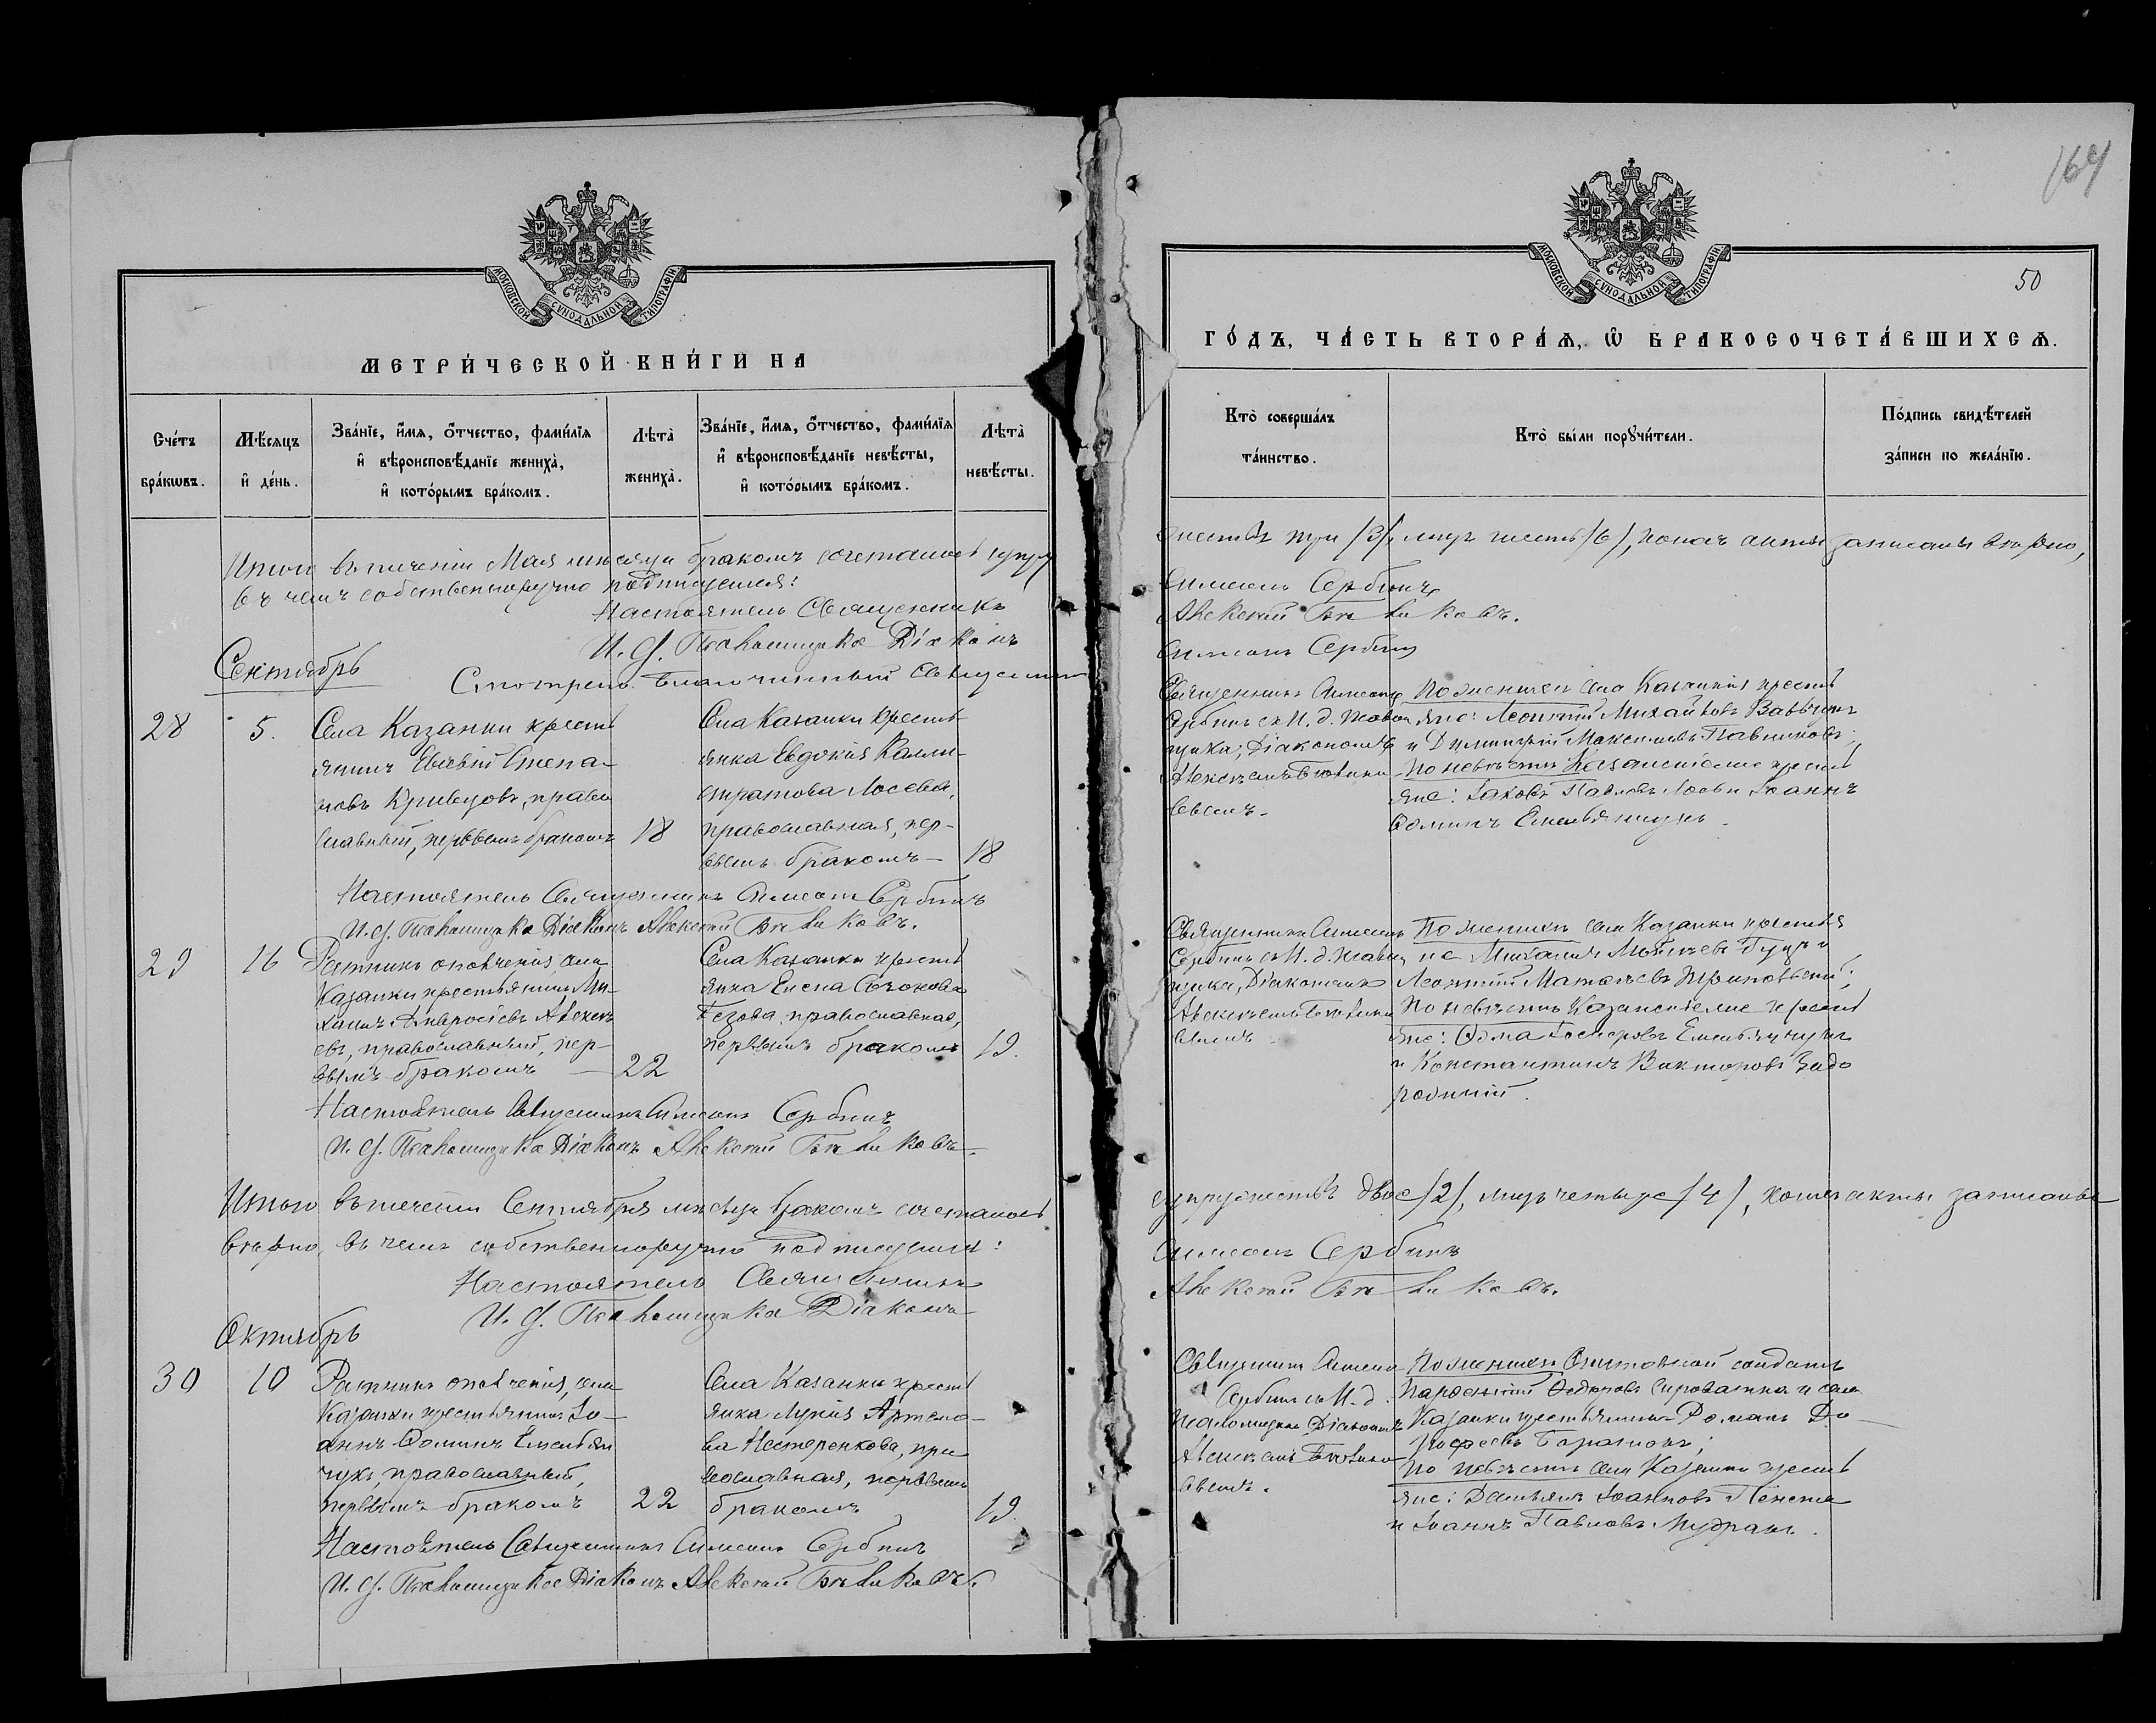 МОСКОВСКОЙ СѴНОДАЛЬНОЙ ТИПОГРАФІИ
МЕТРИ́ЧЕСКОЙ КНИ́ГИ НА
Сче́тъ бра́кѡвъ.
Мѣ́сяцъ и҆ де́нь.
Зва́нїе, и҆́мѧ, ѻ҆́тчество, фами́лїѧ
и҆ вѣроисповѣ́данїе жениха̀,
и҆ кото́рымъ бра́комъ.
Лѣта̀ жениха̀.
Зва́нїе, и҆́мѧ, ѻ҆́тчество, фами́лїѧ
и҆ вѣроисповѣ́данїе невѣ́сты,
и҆ кото́рымъ бра́комъ.
Лѣта̀ невѣ́сты.
Итого въ теченіи Мая мѣсяца бракомъ сочеталось супру
въ чемъ собственноручно подписуемся:
Настоятель Священникъ
И. д. Псаломщика Діаконъ
Сентябрь
Смотрелъ Благочинный Священникъ
28
5.
Села Казанки кресть
янинъ Евѳвій Степа-
новъ Кривцовъ, право
славный, первымъ бракомъ
18
Села Казанки кресть-
янка Евдокія Калли-
стратова Лосева,
православная, пер-
вымъ бракомъ
18
Настоятель Священникъ Симеонъ Сербинъ
И. д. Псаломщика Діаконъ Алексѣй
29
16
Ратникъ ополченія, села
Казанки крестьянинъ Ми-
хаилъ Амвросіевъ Алексѣ
евъ, православный, пер-
вымъ бракомъ
22
Села Казанки кресть
янка Елена
православная,
первымъ бракомъ
19.
Настоятель Священникъ Симеонъ Сербинъ
И. д. Псаломщика Діаконъ Алексѣй
Итого въ теченіи Сентября мѣсяца бракомъ сочеталось
вѣрно, въ чемъ собственноручно подписуемся:
Настоятель Священникъ
И. д. Псаломщика Діаконъ
Октябрь
30
10
Ратникъ ополченія, села
Казанки крестьянинъ Іо-
аннъ Ѳоминъ Емельян
чукъ, православный,
первымъ бракомъ
22
Села Казанки кресть
янка Лукія Артемо-
ва Нестеренкова, пра
вославная, первымъ
бракомъ
19.
Настоятель Священникъ Симеонъ Сербинъ
И. д. Псаломщика Діаконъ Алексѣй
164
50
МОСКОВСКОЙ СѴНОДАЛЬНОЙ ТИПОГРАФІИ
ГО́ДЪ, ЧА́СТЬ ВТОРА́Ѧ, Ѡ҆ БРАКОСОЧЕТА́ВШИХСѦ.
Кто̀ соверша́лъ та́инство.
Кто̀ бы́ли порꙋчи́тели.
По́дпись свидѣ́телей за́писи по жела́нїю.
жествъ три /3/, лицъ шесть /6/, коихъ акты записаны вѣрно,
Симеонъ Сербинъ
Алексѣй
Симеонъ Сербинъ
Священникъ Симеонъ
Сербинъ съ И. д. Псалом
щика, Діакономъ
Алексѣемъ
вымъ.
По женихѣ: села Казанки кресть
яне: Леонтій Михайловъ
и Димитрій Максимовъ Павликовъ;
По невѣстѣ: Казанскіе кресть
яне: Іаковъ Павловъ Лось и Іоаннъ
Ѳоминъ Емельянчукъ.
Священникъ Симеонъ
Сербинъ съ И. д. Псалом
щика, Діакономъ
Алексѣемъ
вымъ
По женихѣ: села Казанки крестья
не Михаилъ
Леонтій
По невѣстѣ: Казанскіе кресть
яне: Ѳома Емельянчукъ
и Константинъ Викторовъ Задо
рожній.
супружествъ двое /2/, лицъ четыре /4/, коихъ акты записаны
Симеонъ Сербинъ
Алексѣй
Священникъ Симеонъ
Сербинъ съ И. д.
Псаломщика Діакономъ
Алексѣемъ
вымъ.
По женихѣ: солдатъ
Парѳентій Ѳедоровъ Сироватка и села
Казанки крестьянинъ Романъ До-
роѳеевъ
По невѣстѣ: села Казанки кресть
яне: Даміанъ Іоанновъ
и Іоаннъ Павловъ Мудракъ.